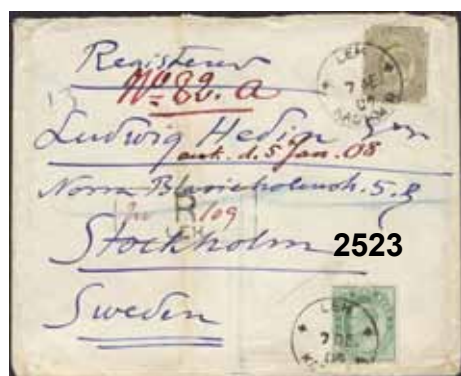 Registered
LEH
7 DE
07
No 82. a
Ludwig Hedin Esqr
ank. d. 5 Jan. 08
Norra Blasieholmsh. 5. B
R
/109
LEH
Stockholm 2523
Sweden
LEH
7 DE